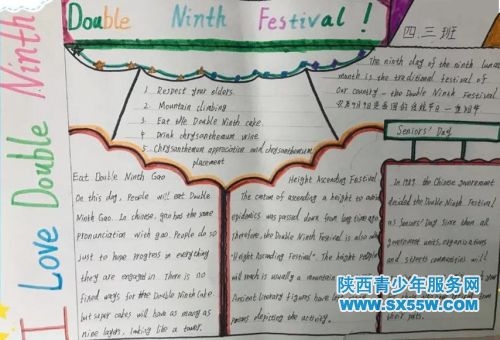 Double Ninth Festival!
四.三班
I Love Double Ninth
The ninth day of the ninth lunar
month is the traditional festival of
our country - the Double Ninth Festival
1. Respect your elders.
2. Mountain climbing
3. Eat the Double Ninth cake.
4. Drink chrysanthemum wine
5. Chrysanthemum appreciation and chrysanthemum
placement
Eat Double Ninth Gao
On this day, People will eat Double
Ninth Gao. In chinese, gao has the same
pronunciation with gao. People do so
just to hope progress in everything
they are engaged in. There is no
fixed ways for the Double Ninth Cake
but super cakes will have as many as
nine layers, looking like a tower.
Height Ascending Festival
The custom of ascending a height to avoid
epidemics was passed down from long time ago
Therefore, the Double Ninth Festival is also
"Height Ascending Festival". The height people
will reach is usually a mountain
Ancient literary figures have
poems depicting the activity.
Seniors' Day
In 1989. the Chinese government
decided the Double Ninth Festival
as Seniors' Day. Since then all
government units, organizations
and streets communities will
their posts.
陕西青少年服务网
www.sx55w.com